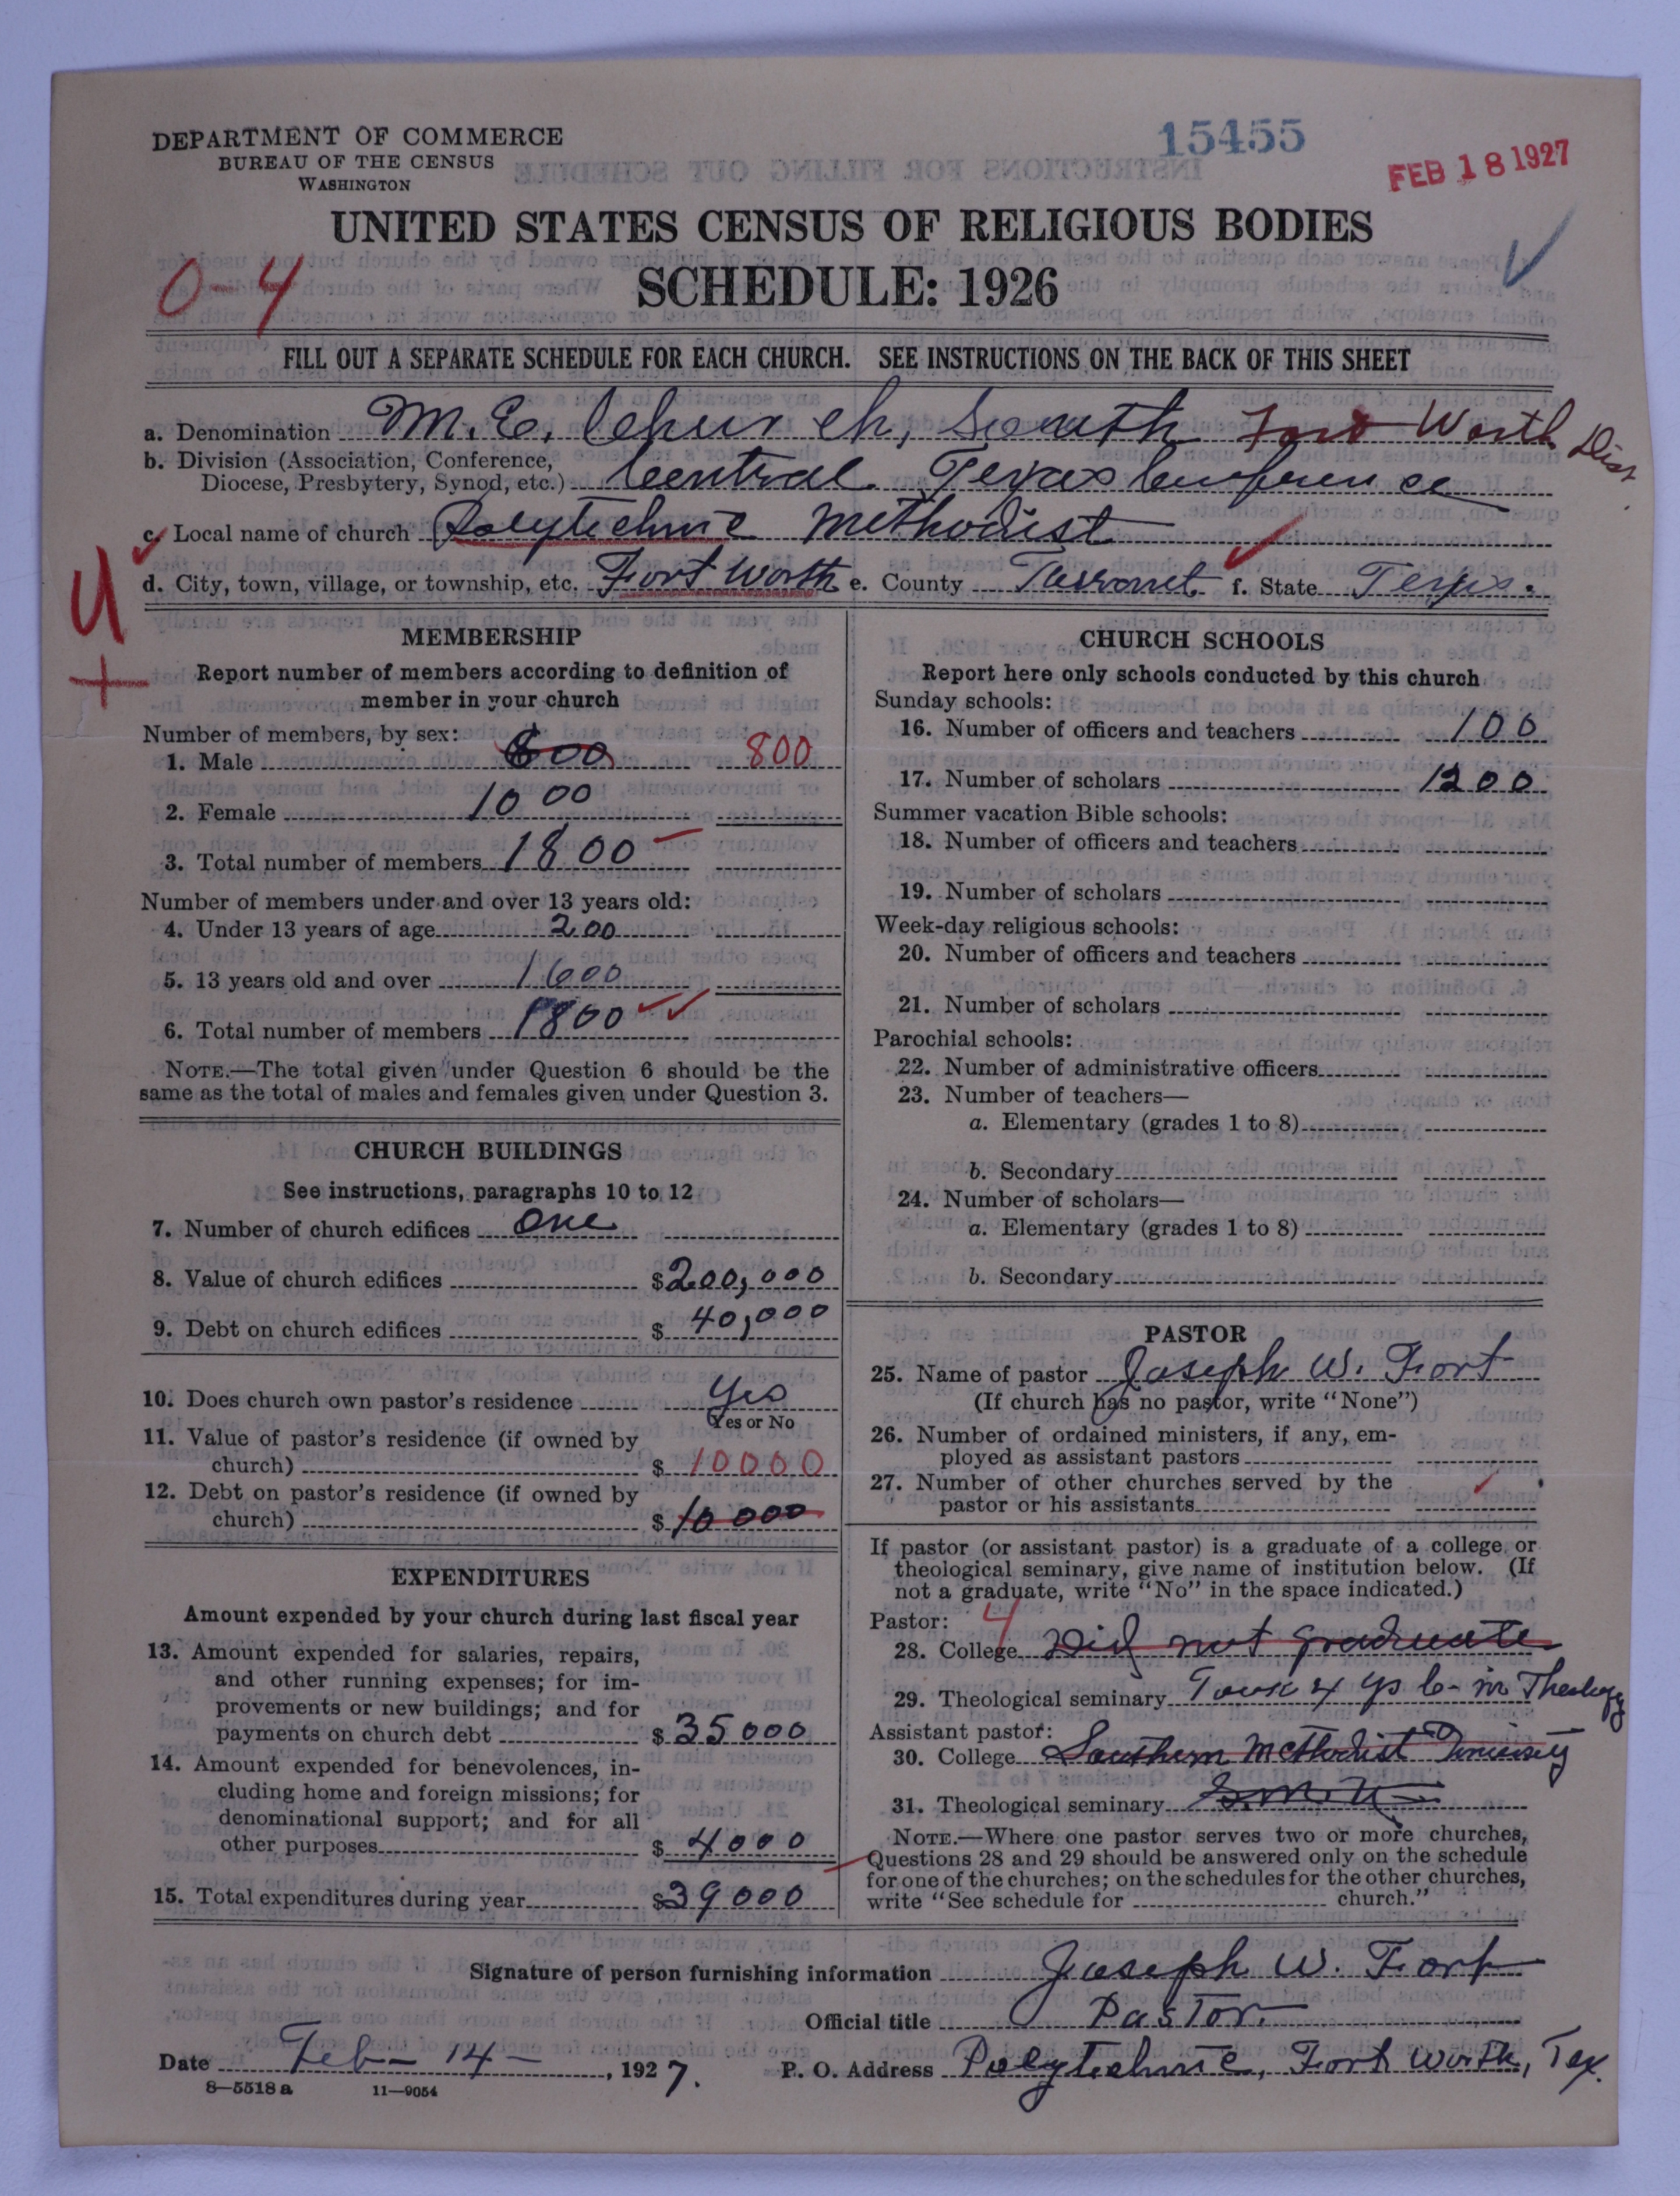 DEPARTMENT OF COMMERCE
BUREAU OF THE CENSUS
WASHINGTON
15455
FEB 18 1927
UNITED STATES CENSUS OF RELIGIOUS BODIES
SCHEDULE: 1926
0-4
FILL OUT A SEPARATE SCHEDULE FOR EACH CHURCH. SEE INSTRUCTIONS ON THE BACK OF THIS SHEET
a. Denomination M. E. Church, South Fort Worth Dist
b. Division (Association, Conference,
Diocese, Presbytery, Synod, etc.) Central Texas Conference
c. Local name of church Polytechnic Methodist
d. City, town, village, or township, etc. Fort Worth e. County Tarrant f. State Texas.
U
+
MEMBERSHIP
Report number of members according to definition of
member in your church
Number of members, by sex:
1. Male 800 800
2. Female 1000
3. Total number of members 1800
Number of members under and over 13 years old:
4. Under 13 years of age 200
5. 13 years old and over 1600
6. Total number of members 1800
NOTE.—The total given under Question 6 should be the
same as the total of males and females given under Question 3.
CHURCH BUILDINGS
See instructions, paragraphs 10 to 12
7. Number of church edifices One
8. Value of church edifices $200,000
9. Debt on church edifices $ 40,000
10. Does church own pastor's residence Yes
Yes or No
11. Value of pastor's residence (if owned by
church) $ 10000
12. Debt on pastor's residence (if owned by
church) $ 10000
EXPENDITURES
Amount expended by your church during last fiscal year
13. Amount expended for salaries, repairs,
and other running expenses; for im-
provements or new buildings; and for
payments on church debt $ 35000
14. Amount expended for benevolences, in-
cluding home and foreign missions; for
denominational support; and for all
other purposes $ 4000
15. Total expenditures during year $39000
CHURCH SCHOOLS
Report here only schools conducted by this church
Sunday schools:
16. Number of officers and teachers 100
17. Number of scholars 1200
Summer vacation Bible schools:
18. Number of officers and teachers
19. Number of scholars
Week-day religious schools:
20. Number of officers and teachers
21. Number of scholars
Parochial schools:
22. Number of administrative officers
23. Number of teachers—
a. Elementary (grades 1 to 8)
b. Secondary
24. Number of scholars—
a. Elementary (grades 1 to 8)
b. Secondary
PASTOR
25. Name of pastor Joseph W. Fort
(If church has no pastor, write "None")
26. Number of ordained ministers, if any, em-
ployed as assistant pastors
27. Number of other churches served by the
pastor or his assistants
If pastor (or assistant pastor) is a graduate of a college or
theological seminary, give name of institution below. (If
not a graduate, write "No" in the space indicated.)
Pastor: 4
28. College Did not graduate
29. Theological seminary Took 4 yrs in Theology
Assistant pastor:
30. College Southern Methodist University
31. Theological seminary S.M.U.
NOTE.—Where one pastor serves two or more churches,
Questions 28 and 29 should be answered only on the schedule
for one of the churches; on the schedules for the other churches,
write "See schedule for church."
Signature of person furnishing information Joseph W. Fort
Official title Pastor.
Date Feb- 14 -, 1927. P. O. Address Polytechnic, Fort Worth, Tex.
8-5518 a 11-9054